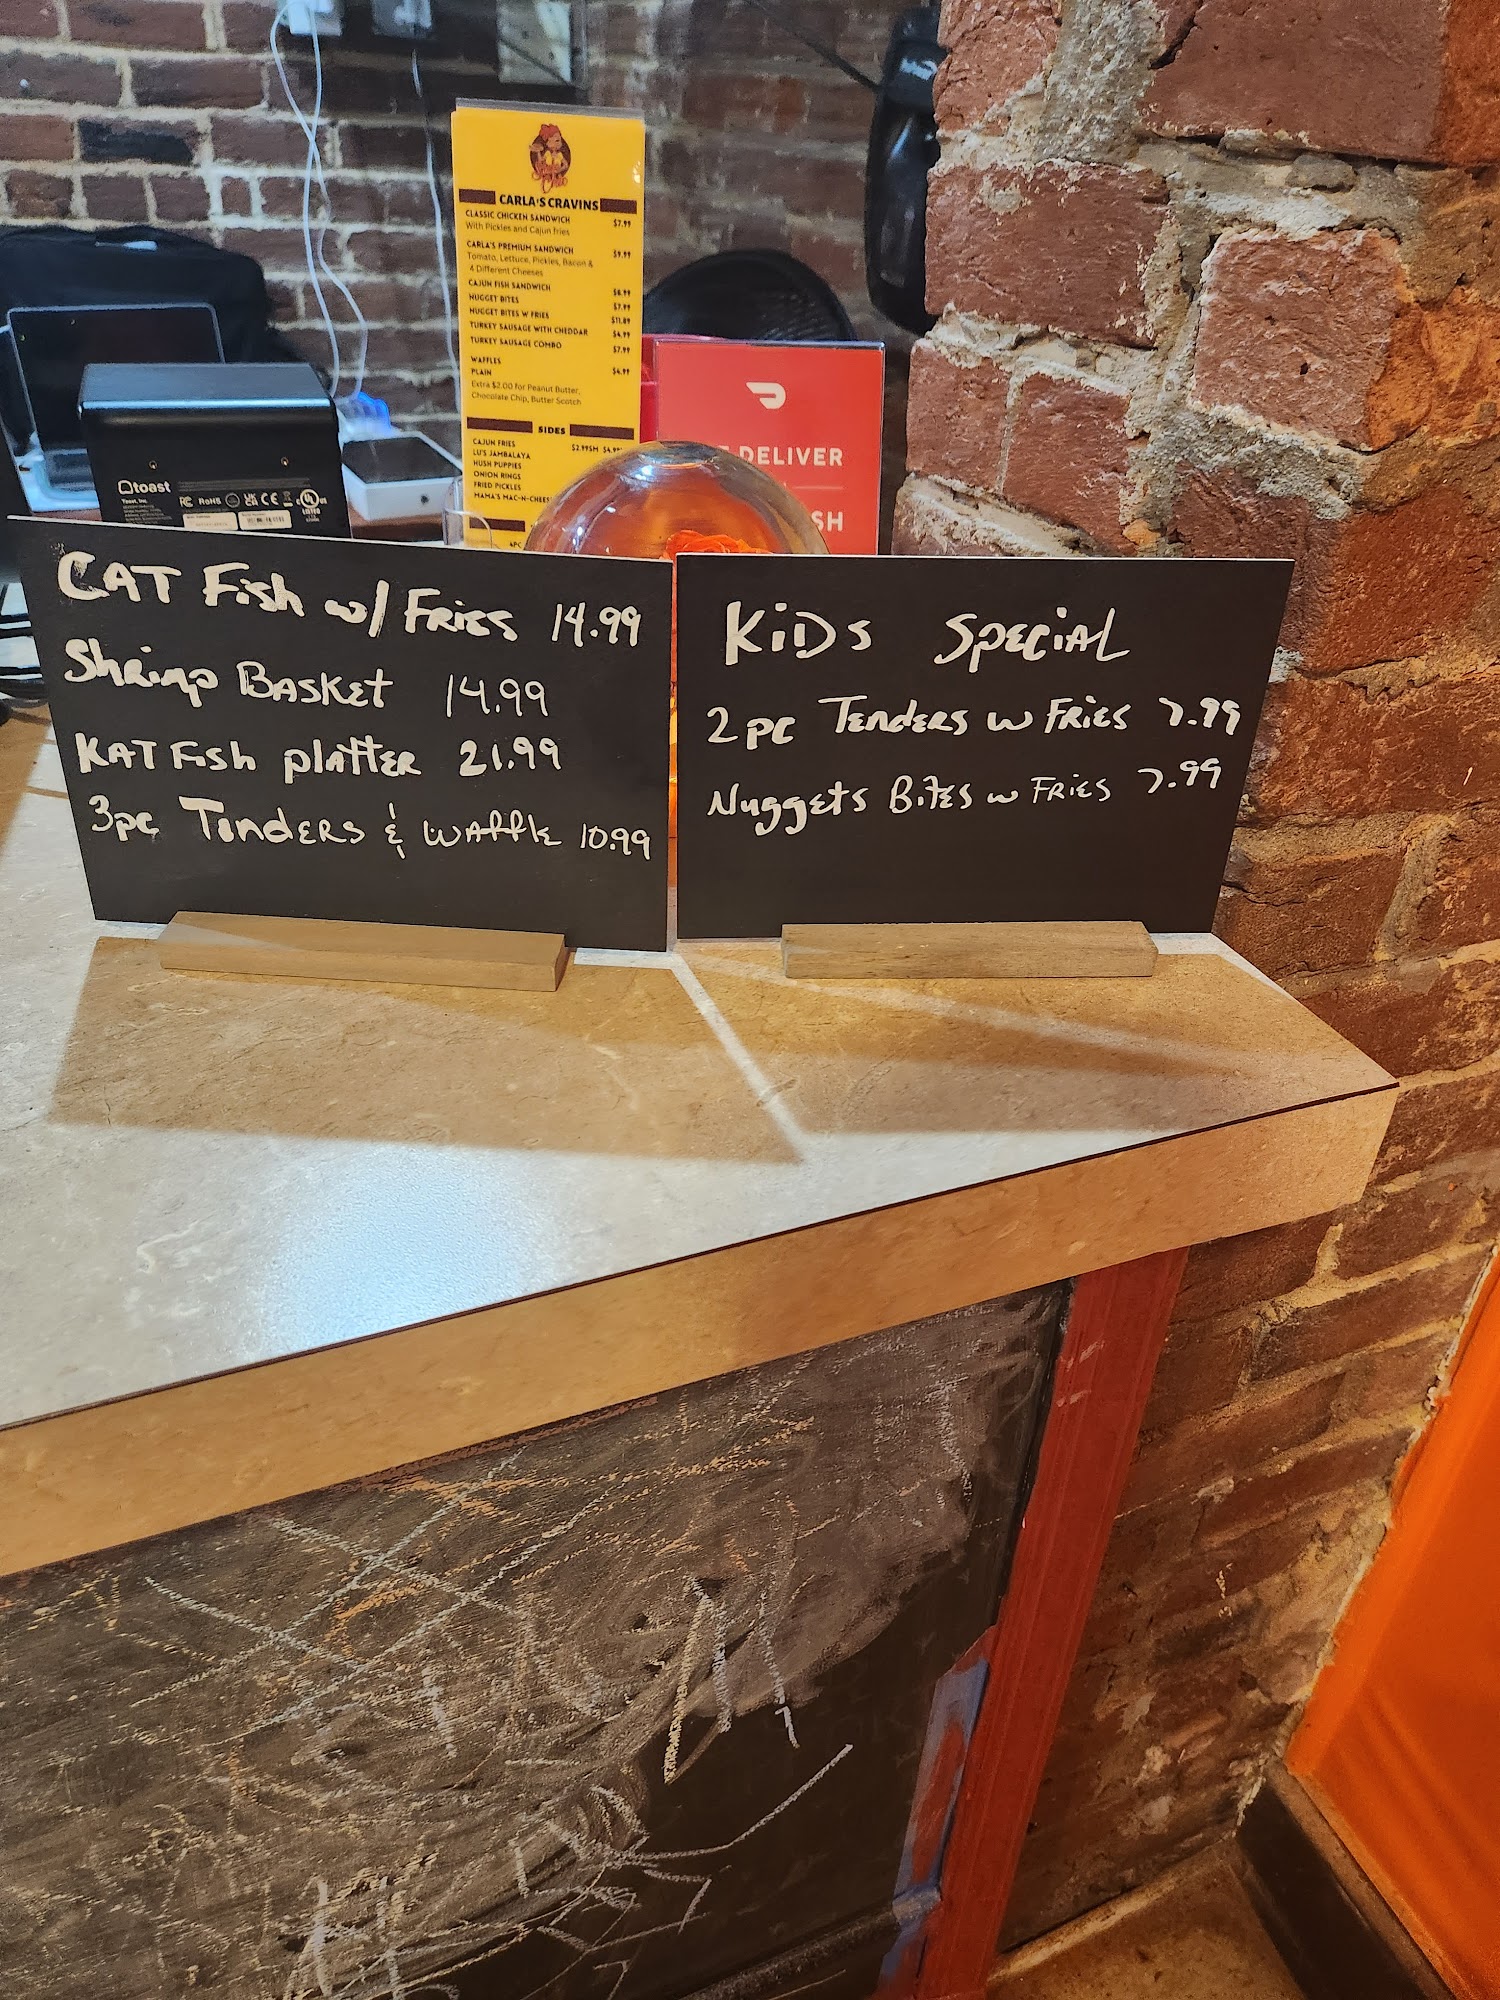 CARLA'S CRAVINS
CLASSIC CHICKEN SANDWICH $7.99
With Pickles and Cajun fries
CARLA'S PREMIUM SANDWICH $9.99
Tomato, Lettuce, Pickles, Bacon &
4 Different Cheeses
CAJUN FISH SANDWICH $8.99
NUGGET BITES $7.99
NUGGET BITES W FRIES $11.89
TURKEY SAUSAGE WITH CHEDDAR $4.99
TURKEY SAUSAGE COMBO $7.99
WAFFLES
PLAIN $4.99
Extra $2.00 for Peanut Butter,
Chocolate Chip, Butter Scotch
SIDES
CAJUN FRIES $2.99SM
LU'S JAMBALAYA
HUSH PUPPIES
ONION RINGS
FRIED PICKLES
MAMA'S MAC-N-CHEES
4PC
DELIVER
SH
toast
Toast, Inc.
RoHS
CE
UL
LISTED
CAT Fish w/ FRIES 14.99
Shrimp BASKET 14.99
KAT Fish plAttER 21.99
3pc TENDERS & WAffle 10.99
KiDs SpeciAL
2pc TENDERS w FRIES 7.99
Nuggets BiTES w FRIES 7.99